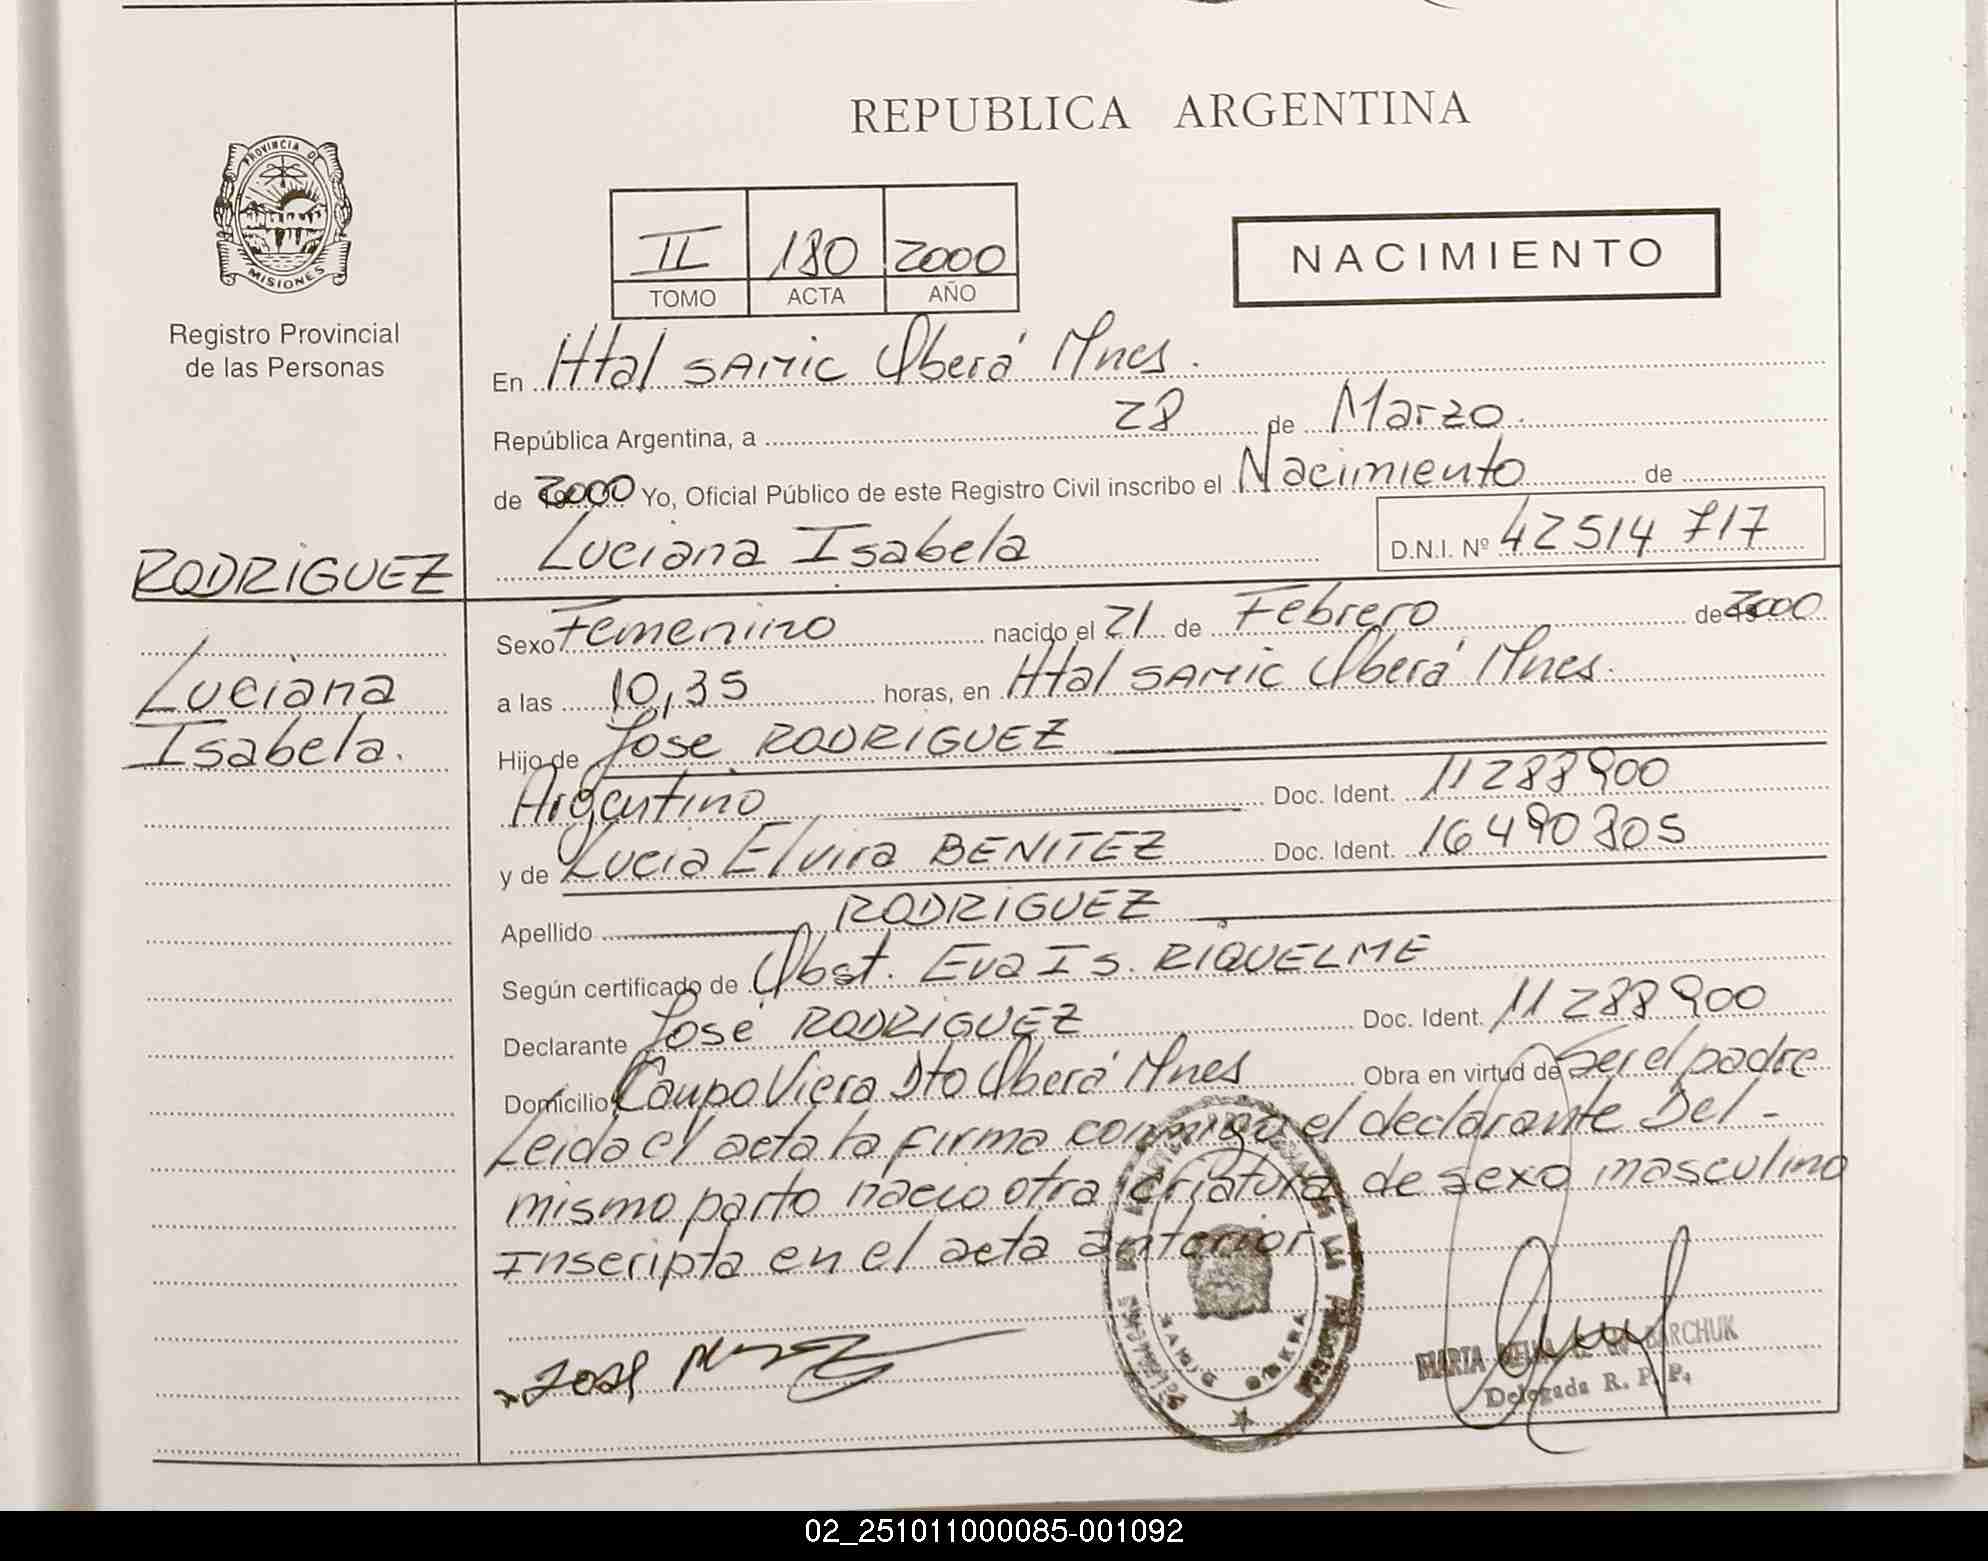 REPUBLICA ARGENTINA
PROVINCIA DE
MISIONES
Registro Provincial
de las Personas
II 180 2000
TOMO ACTA AÑO
NACIMIENTO
En Htal SAMIC Oberá Mnes.
República Argentina, a 28 de Marzo.
de 2000 Yo, Oficial Público de este Registro Civil inscribo el Nacimiento de
Luciana Isabela D.N.I. Nº 42514717
RODRIGUEZ
Luciana
Isabela.
Sexo Femenino nacido el 21 de Febrero de 2000
a las 10,35 horas, en Htal SAMIC Oberá Mnes.
Hijo de Jose RODRIGUEZ
Argentino Doc. Ident. 11288900
y de Lucia Elvira BENITEZ Doc. Ident. 16490805
Apellido RODRIGUEZ
Según certificado de Obst. Eva Is. RIQUELME
Declarante José RODRIGUEZ Doc. Ident. 11288900
Domicilio Campo Viera Dto Oberá Mnes Obra en virtud de ser el padre
Leida el acta la firma conmigo el declarante Del-
mismo parto nacio otra criatura de sexo masculino
Inscripta en el acta anterior
Jose
SAMIC OBERA
MARTA BARCHUK
Delegada R. P. P.
02_251011000085-001092